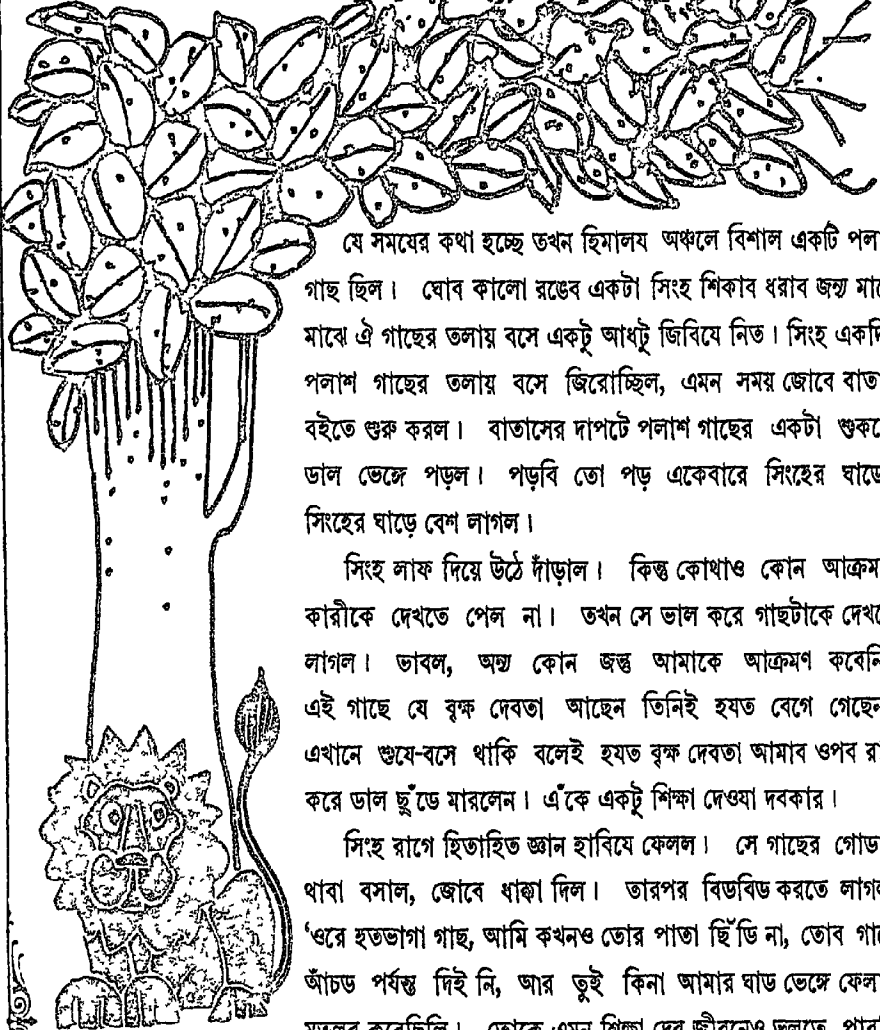 যে সমযের কথা হচ্ছে তখন হিমালয অঞ্চলে বিশাল একটি পলা
গাছ ছিল। ঘোব কালো রঙেব একটা সিংহ শিকাব ধরাব জন্য মাঝে
মাঝে ঐ গাছের তলায় বসে একটু আধটু জিবিযে নিত। সিংহ একদি
পলাশ গাছের তলায় বসে জিরোচ্ছিল, এমন সময় জোবে বাতা
বইতে শুরু করল। বাতাসের দাপটে পলাশ গাছের একটা শুকনে
ডাল ভেঙ্গে পড়ল। পড়বি তো পড় একেবারে সিংহের ঘাড়ে
সিংহের ঘাড়ে বেশ লাগল।
সিংহ লাফ দিয়ে উঠে দাঁড়াল। কিন্তু কোথাও কোন আক্রম
কারীকে দেখতে পেল না। তখন সে ভাল করে গাছটাকে দেখতে
লাগল। ভাবল, অন্য কোন জন্তু আমাকে আক্রমণ কবেনি
এই গাছে যে বৃক্ষ দেবতা আছেন তিনিই হযত বেগে গেছেন
এখানে শুযে-বসে থাকি বলেই হযত বৃক্ষ দেবতা আমাব ওপব রা
করে ডাল ছুঁডে মারলেন। এঁকে একটু শিক্ষা দেওযা দবকার।
সিংহ রাগে হিতাহিত জ্ঞান হাবিযে ফেলল। সে গাছের গোড
থাবা বসাল, জোবে ধাক্কা দিল। তারপর বিডবিড করতে লাগল
‘ওরে হতভাগা গাছ, আমি কখনও তোর পাতা ছিঁডি না, তোব গাযে
আঁচড পর্যন্ত দিই নি, আর তুই কিনা আমার ঘাড ভেঙ্গে ফেলা
মতলব করেছিলি। তোকে এমন শিক্ষা দেব জীবনেও ভুলতে পারবি